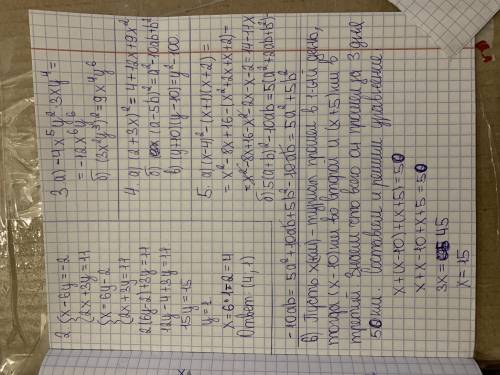 2. {x-6y=-2
{2x+3y=11
{x=6y-2
{2x+3y=11
2(6y-2)+3y=11
12y-4+3y=11
15y=15
y=1
x=6·1-2=4
Ответ: (4,1)
3 а) -4x⁵y²·3xy⁴=
=-12x⁶y⁶
б) (3x²y³)²=9x⁴y⁶
4. а) (2+3x)²=4+12x+9x²
б) (a-5b)²=a²-10ab+b²
в) (y+10)(y-10)=y²-100
5. а) (x-4)²-(x+1)(x+2)=
=x²-8x+16-(x²+2x+x+2)=
=x²-8x+16-x²-2x-x-2=14-11x
б) 5(a+b)²-10ab=5(a²+2ab+b²)
-10ab=5a²+10ab+5b²-10ab=5a²+5b²
6) Пусть x(км)-турист прошел в 1-ый день,
тогда (x-10)км во второй и (x+5)км в
третий. Зная что всего он прошел за 3 дня
50км. Составим и решим уравнение
x+(x-10)+(x+5)=50
x+x-10+x+5=50
3x=45
x=15